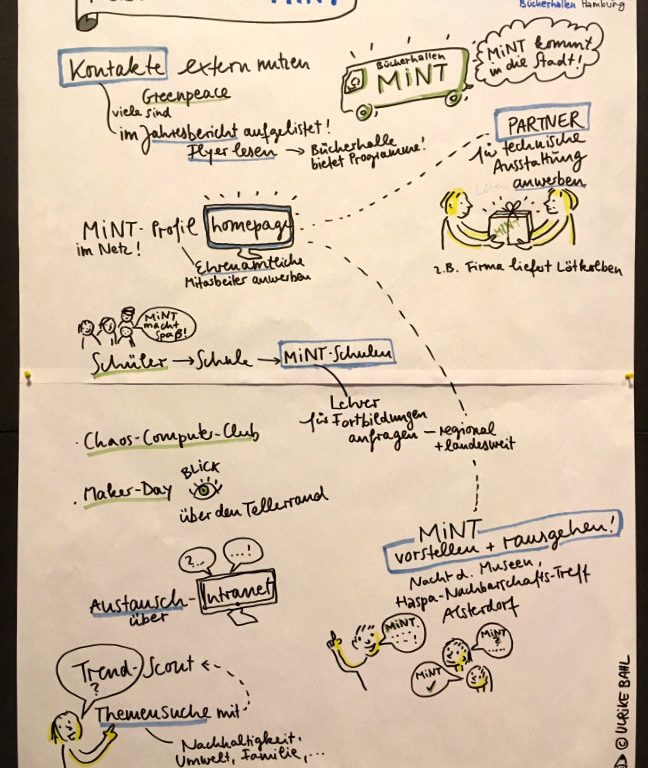 MiNT
Bücherhallen Hamburg
Kontakte extern nutzen
Greenpeace
viele sind
im Jahresbericht aufgelistet!
Flyer lesen → Bücherhalle
bietet Programme!
Bücherhallen
MiNT
MiNT kommt
in die Stadt!
PARTNER
für technische
Ausstattung
anwerben
MINT
z.B. Firma liefert Lötkolben
MiNT-Profil homepage
im Netz!
Ehrenamtliche
Mitarbeiter anwerben
MiNT
macht
Spaß!
Schüler → Schule → MiNT-Schulen
Lehrer
für Fortbildungen
anfragen – regional
+ landesweit
· Chaos-Computer-Club
· Maker-Day BLICK
über den Tellerrand
MiNT
vorstellen + rausgehen!
Nacht d. Museen,
Haspa-Nachbarschafts-Treff
Alsterdorf
?... ...!
Austausch- Intranet
über
MiNT
.....
MiNT
?
MiNT
✓
Trend-Scout
?
Themensuche mit
Nachhaltigkeit,
Umwelt, Familie, ...
© ULRIKE BAHL